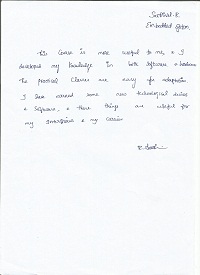 Embedded System
This Course is more useful to me, & I
developed my knowledge in both software & hardware
The practical classes are very for adaptation.
I have earned some new technological devices
& software, & these things are useful for
my interviews & my career